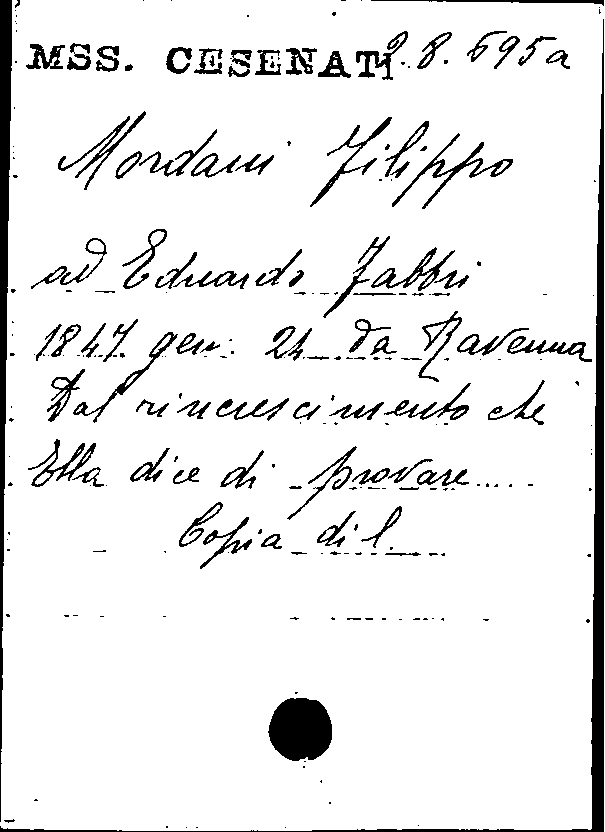 MSS. CESENATI 9.8.695a
Mordani Filippo
ad Eduardo Fabbri
1847. gen. 24 da Ravenna
Dal rincrescimento che
Ella dice di provare.....
Copia di l.